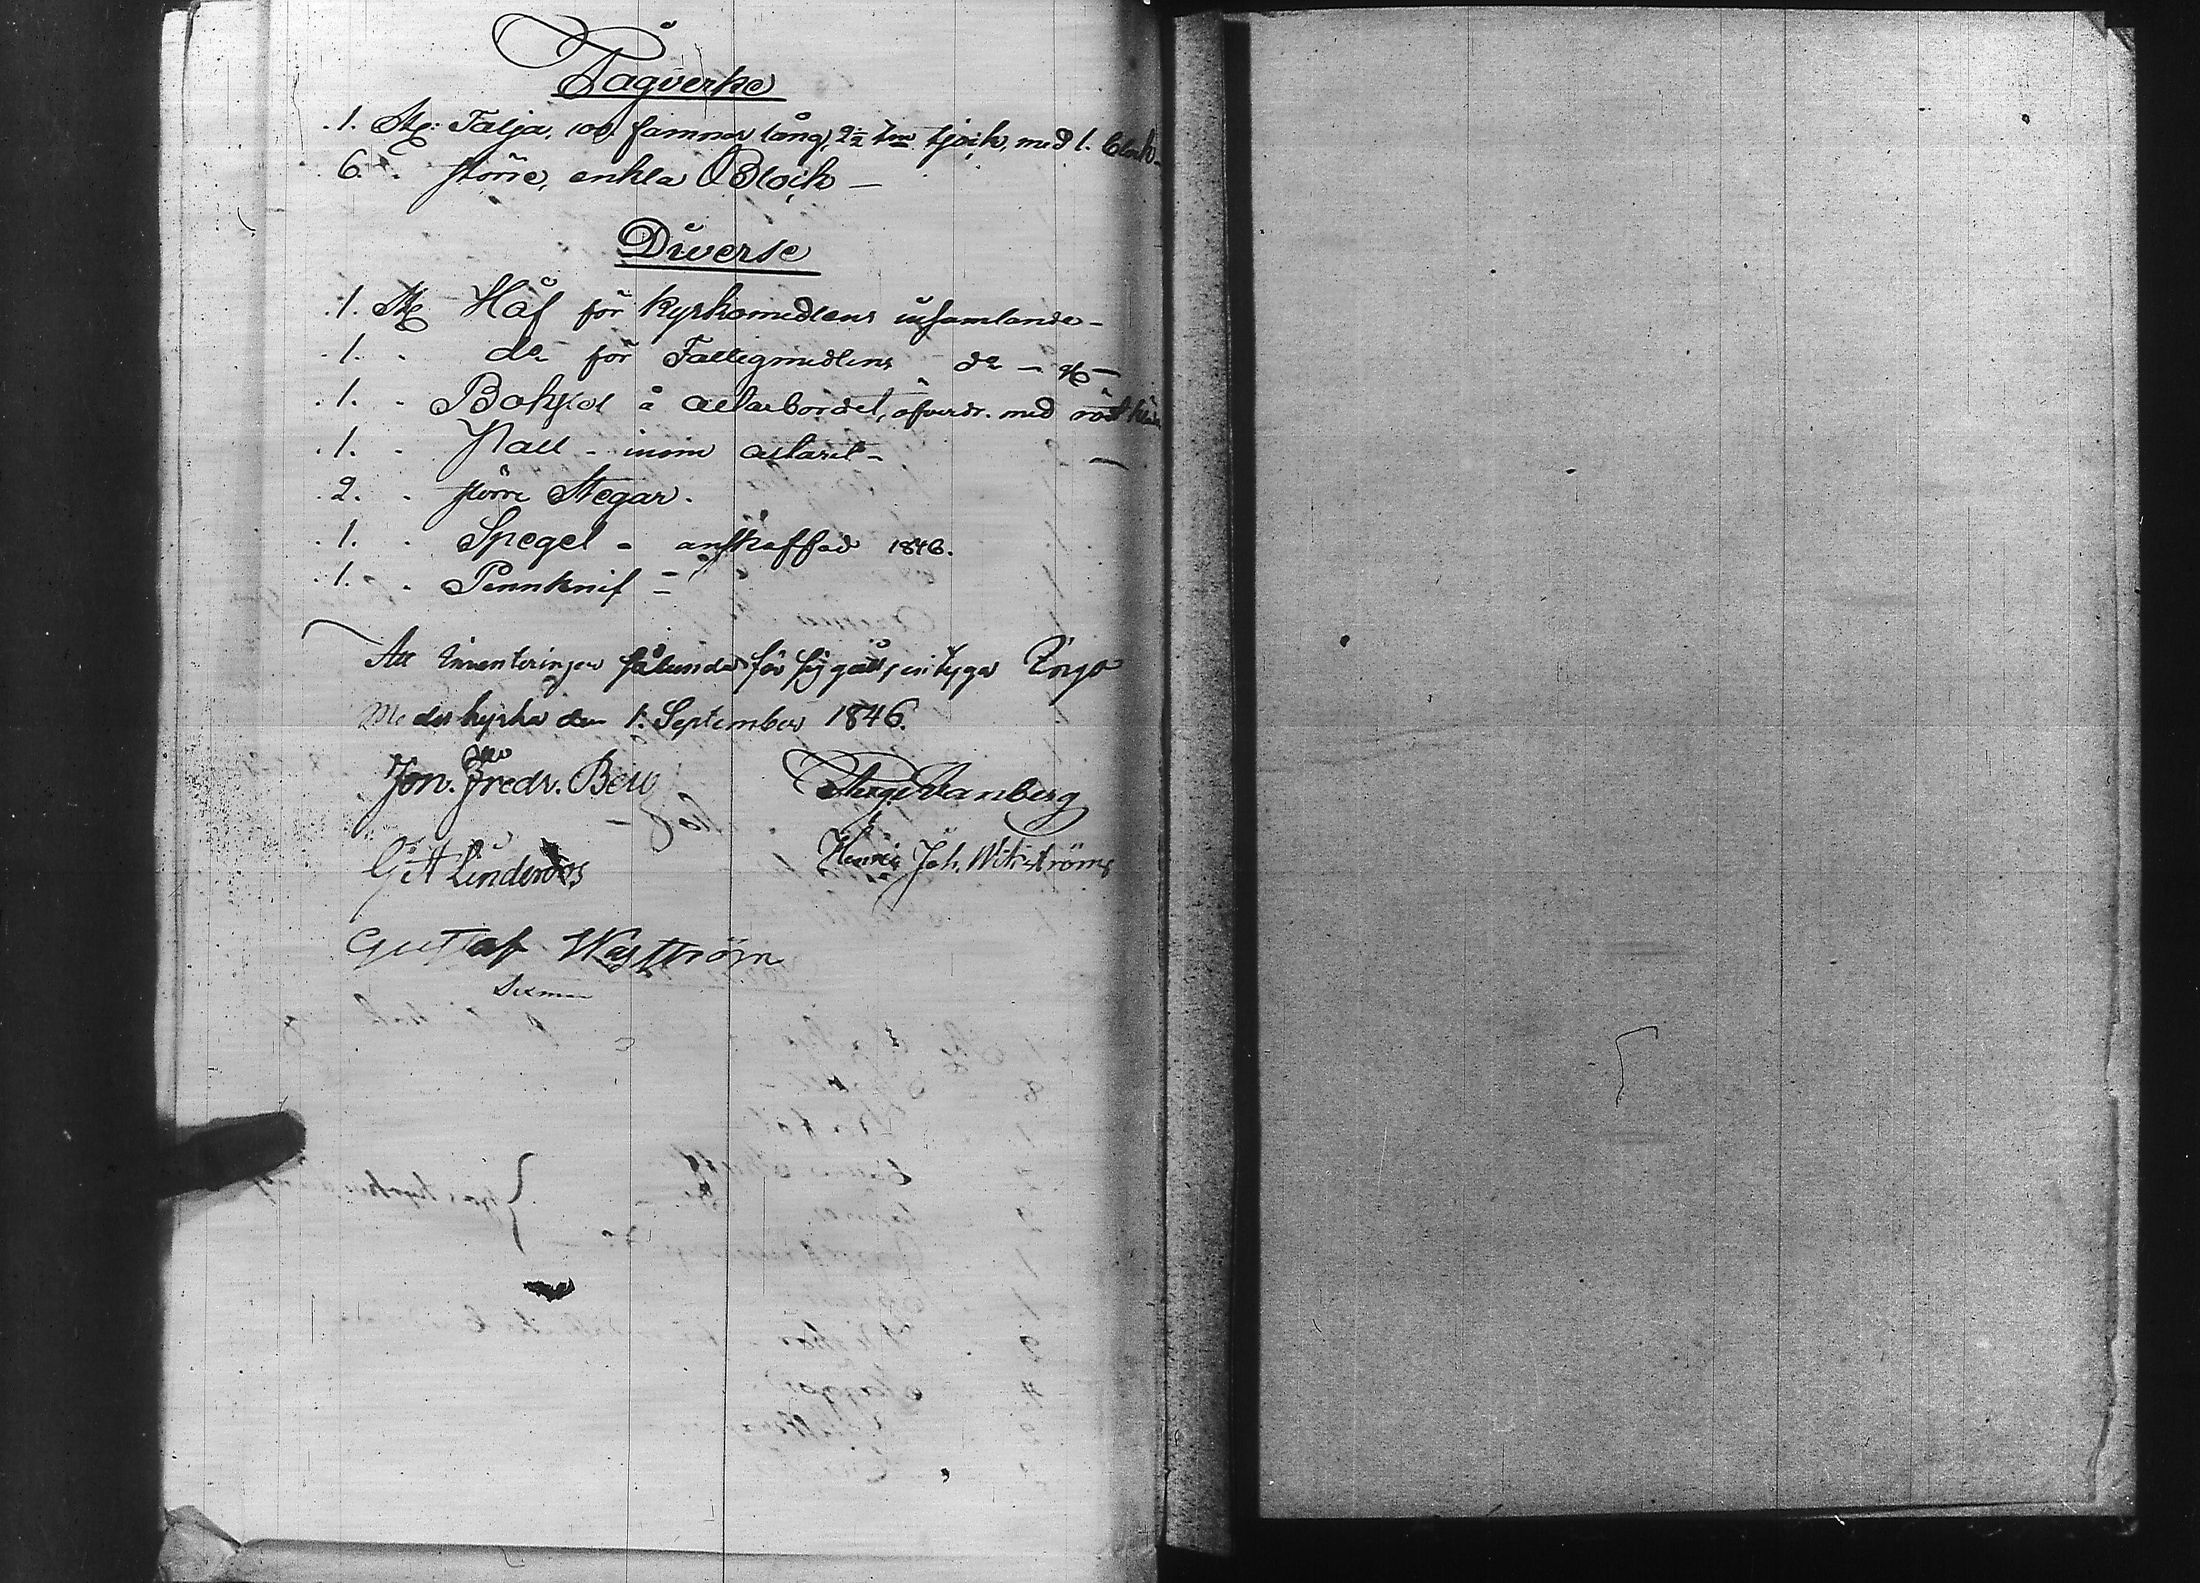 Tågverke
.1. St: Talja, 100. famnar lång, 2½ tum tjock, med 1. block
.6. . större, enkla Block —
Diverse
.1. St Håf för Kyrkomedlens insamlande -
.1. . do för Fattigmedlens do -
.1. . Bokstol å altarbordet, öfverdr. med rödt
.1. . Pall - inom altaret -
.2. . större Stegar.
.1. . Spegel - anskaffad 1846.
.1. . Pennknif -
Att Inventeringen sålunda för sig gått, intyga
Moderkyrka den 1. September 1846.
Jon. Fredr.
G A Linderoos
Joh. Wikström
Gustaf Wasström
Sexman